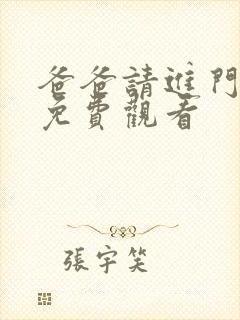 爸爸請進門
免費觀看
張宇笑